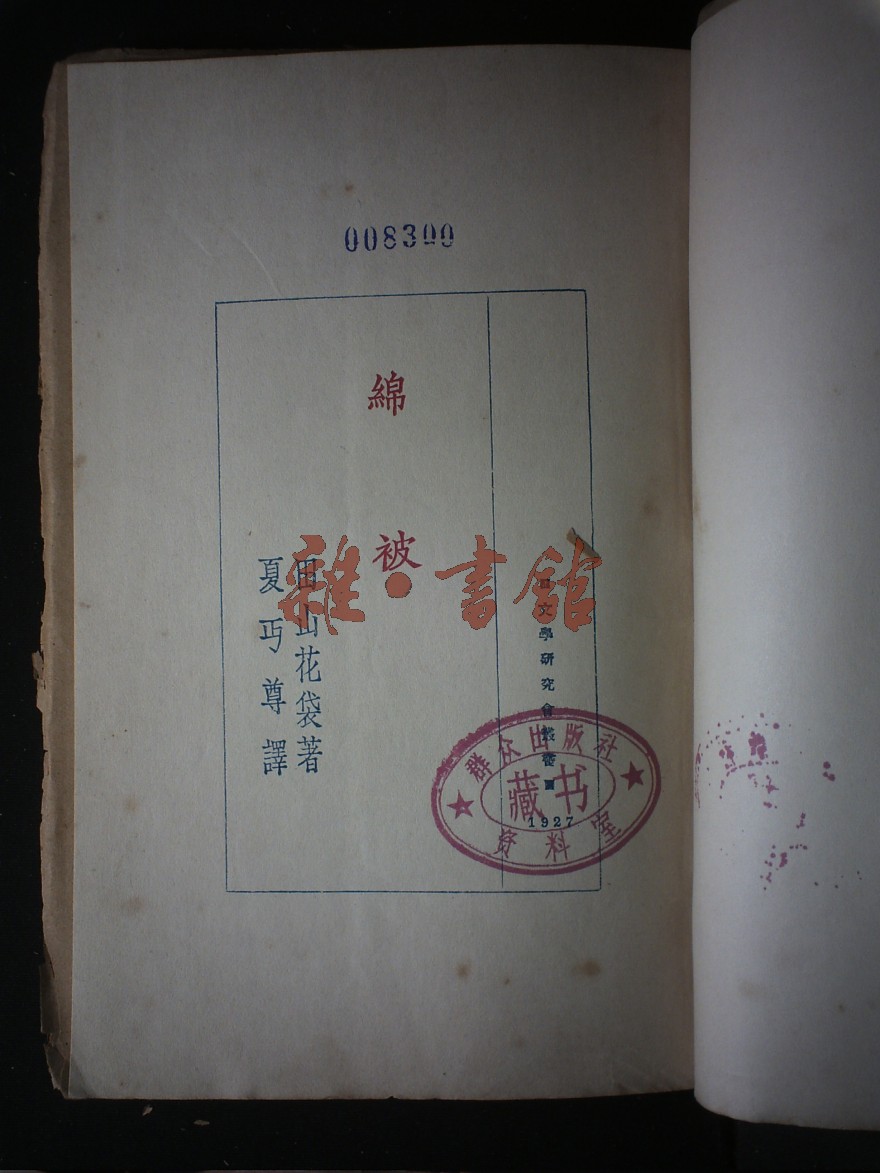 008300
綿被
田山花袋著
夏丏尊譯
文學研究會叢書
1927
群众出版社
藏书
资料室
雜·書館